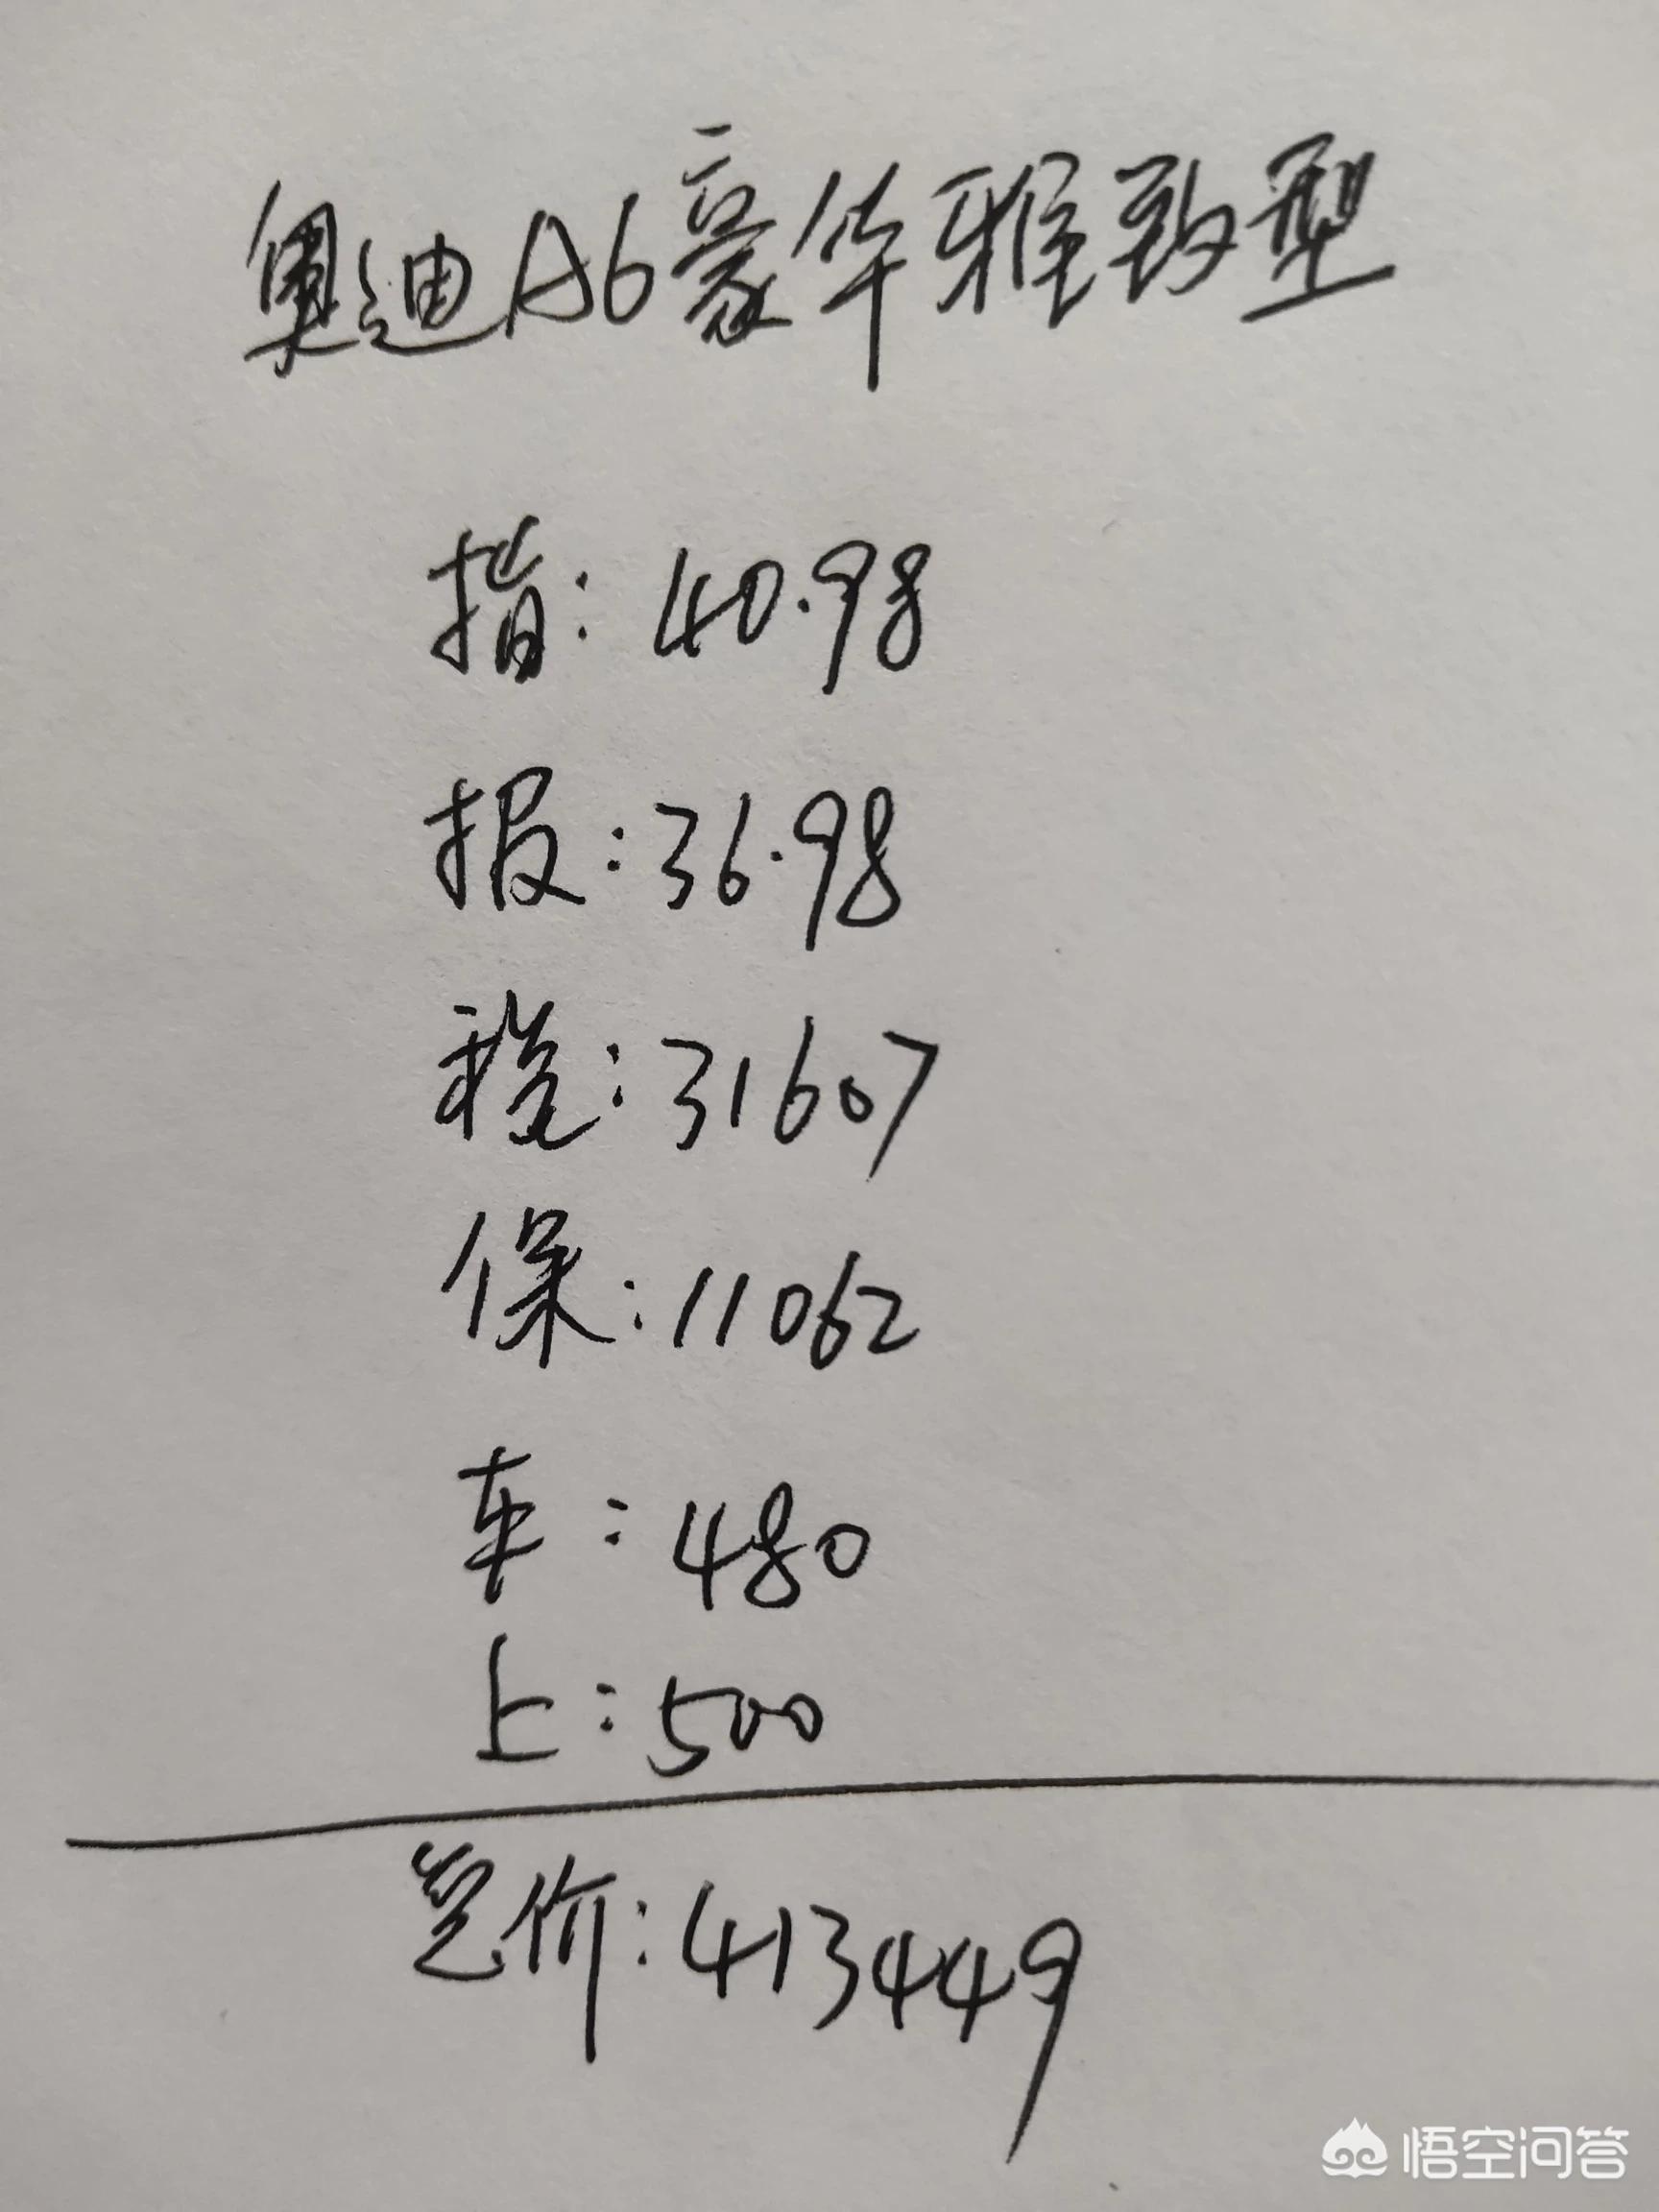 奥迪A6豪华雅致型
指:40.98
报:36.98
税:31607
保:11062
车:480
上:500
总价:413449
悟空问答